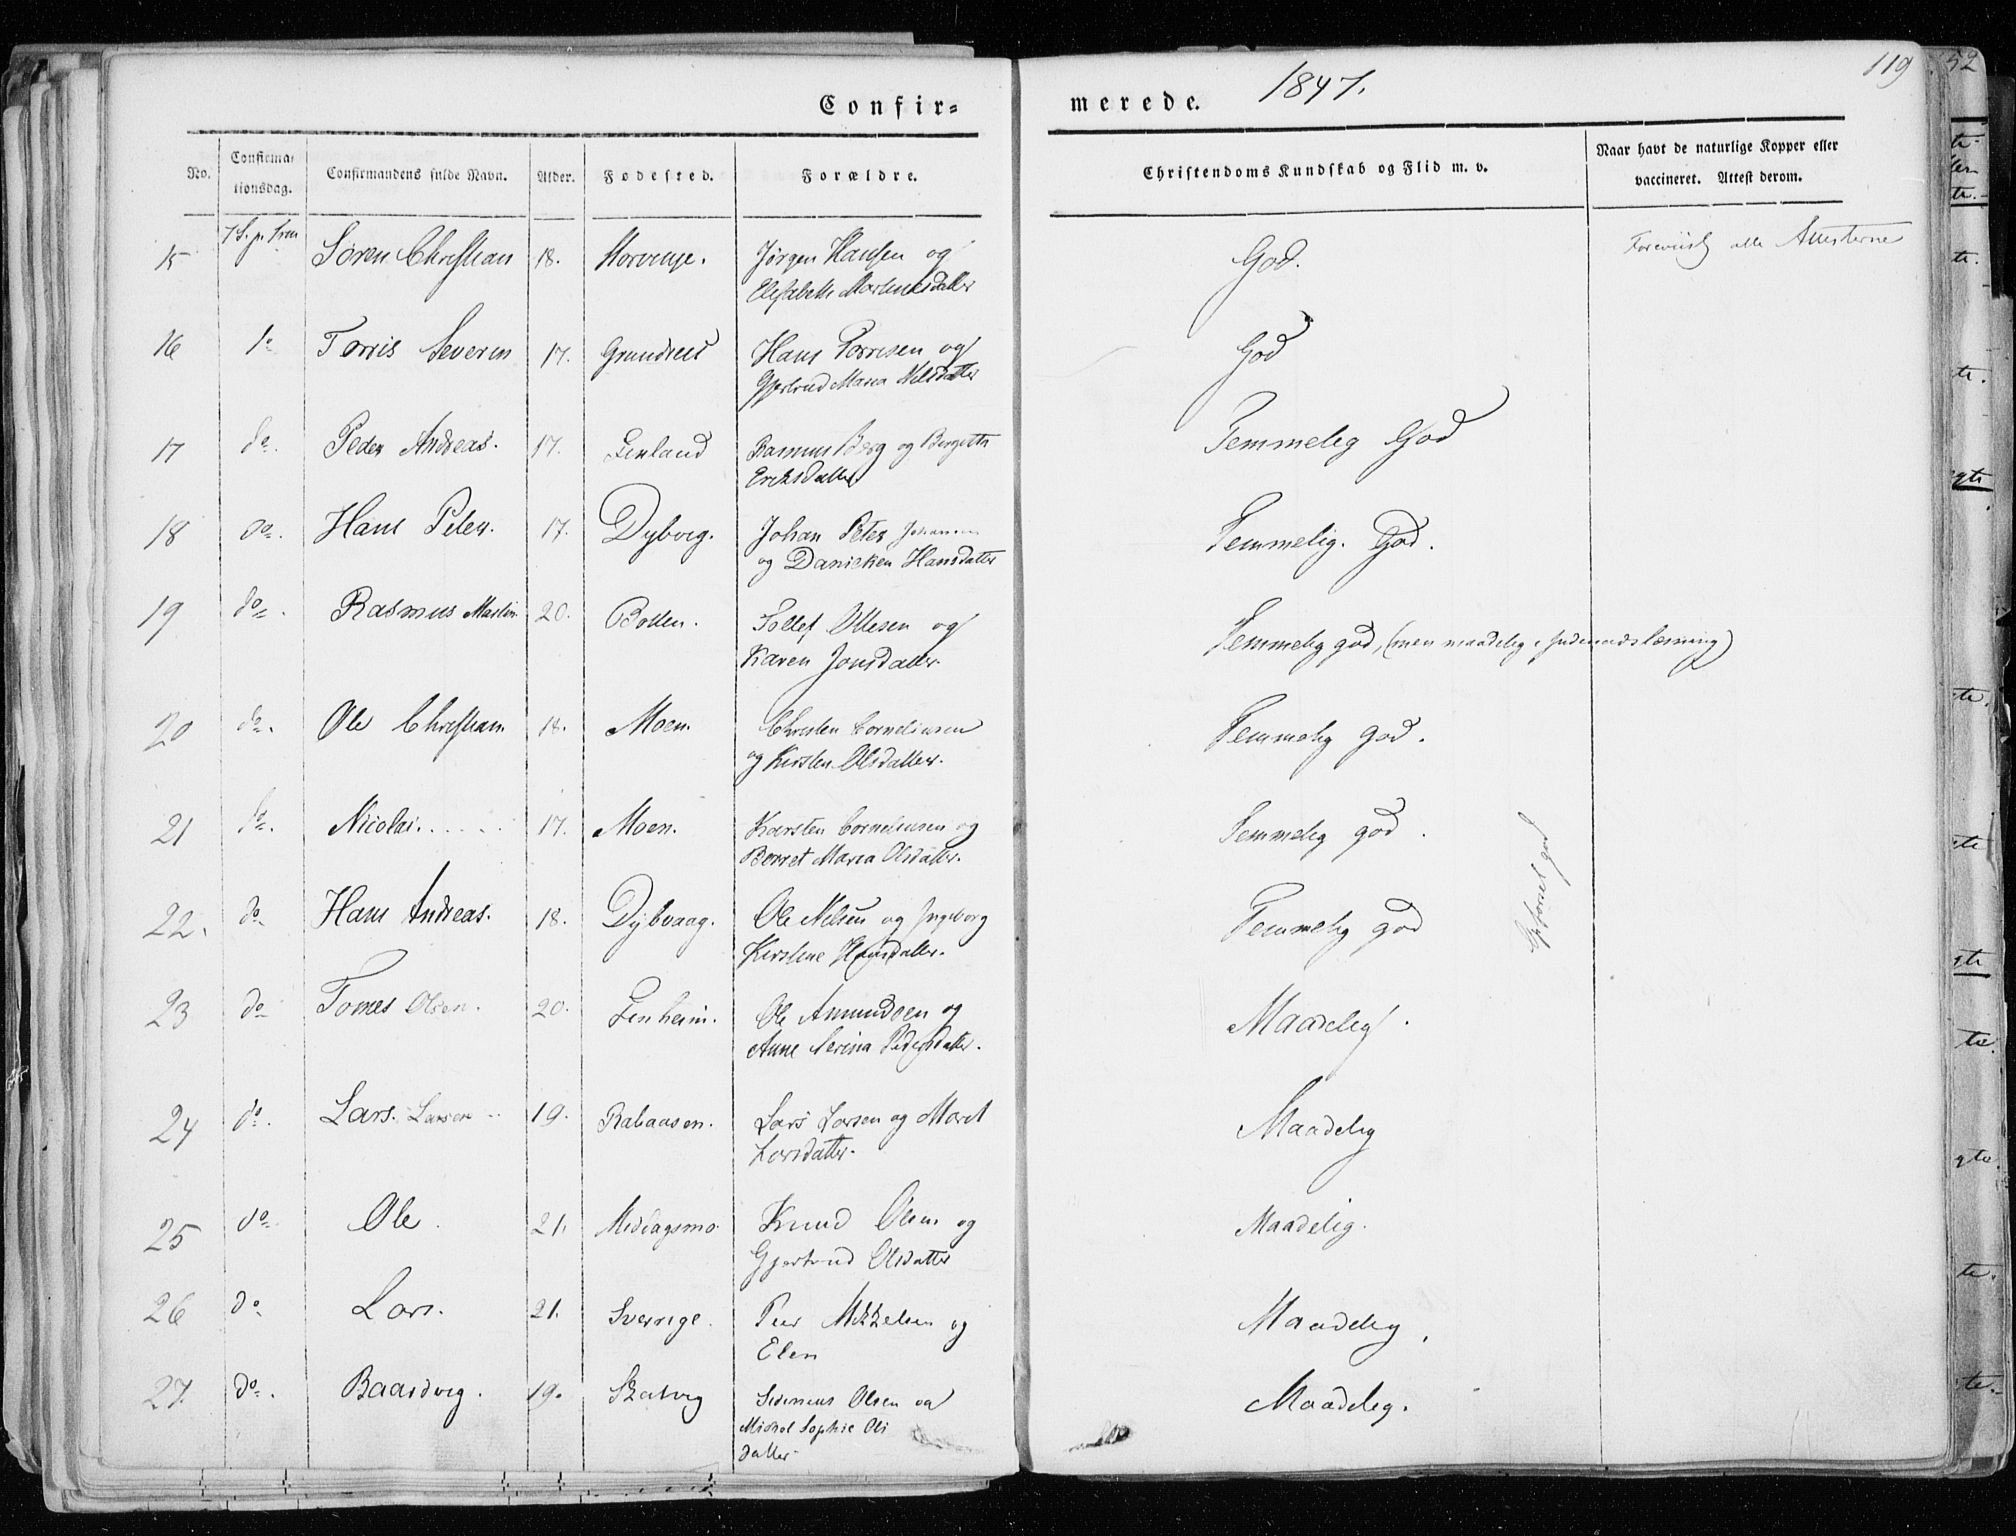 Confir=
merede. 1847.
119
52
No. Confirma-tionsdag. Confirmandens fulde Navn. Alder. Fødested. Forældre. Christendoms Kundskab og Flid m. v. Naar havt de naturlige Kopper eller vaccineret. Attest derom.
15 7 S. p. Tren Søren Christian 18. Jørgen Hansen og God. Foreviist alle Attesterne
Elisabeth Martinusdatter
16 do Torris Severin 17. Grundnes Hans Torrisen og God
Gjertrud Maria Nilsdatter
17 do. Peder Andreas. 17. Lenland Rasmus Berg og Bergette Temmelig God
Eriksdatter
18 do. Hans Peter. 17. Dybvig. Johan Peter Johannsen Temmelig. God.
og Daniken Hansdatter
19 do. Rasmus Martin 20. Botten. Tollef Ottesen og Temmelig god, (men maadelig i Indenadslæsning)
Karen Jonsdatter.
20 do. Ole Christian 18. Moen. Christen Corneliusen Temmelig god.
og Kirsten Olsdatter.
21 do. Nicolai..... 17. Moen. Karsten Corneliusen og Temmelig god.
Berret Maria Olsdatter.
22. do Hans Andreas. 18. Dybvaag. Ole Nelsen og Ingeborg Temmelig god
Kirstine Hansdatter.
23 do Tomes Olsen. 20. Lenheim. Ole Amundsen og Maadelig.
Anne Serina Pedersdatter.
24 do. Lars. Larsen 19. Rabaasen. Lars Larsen og Maret Maadelig
Larsdatter.
25 do. Ole. 21. Middagsmo Knud Olsen og Maadelig.
Gjertrud Olsdatter
26 do Lars. 21. Sverrige. Peer Mikkelsen og Maadelig.
Elen
27. do. Baardvig. 19. Skatvig Simeus Olsen og Maadelig.
Michol Sophie Ols
datter